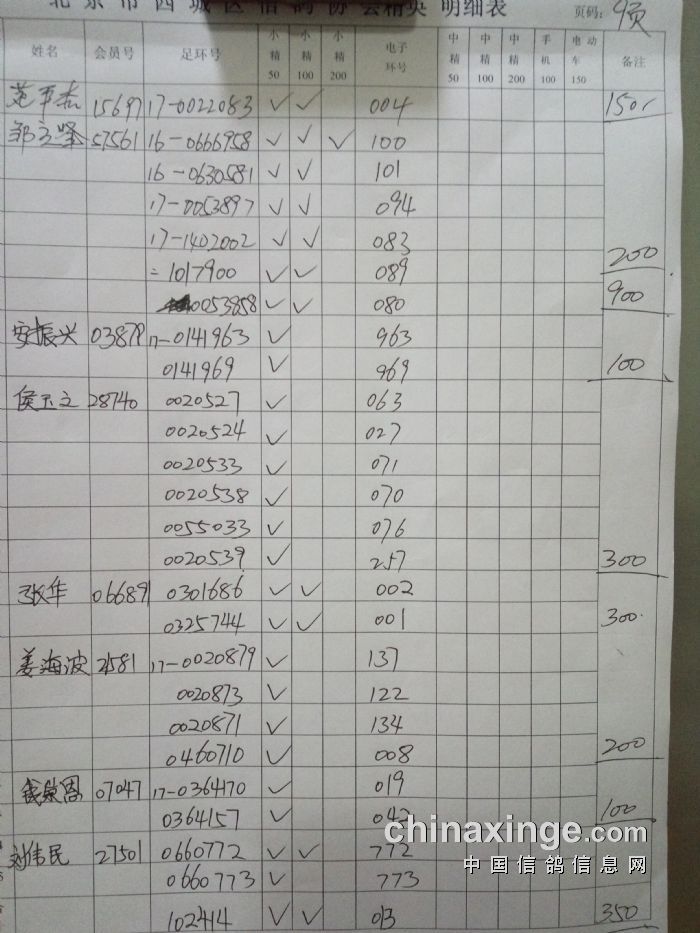 北京市西城区信鸽协会精英 明细表
页码: 9页
姓名 会员号 足环号 小精50 小精100 小精200 电子环号 中精50 中精100 中精200 手机100 电动车150 备注
15697 17-0022083 ✓ ✓ 004 150
57561 16-0666958 ✓ ✓ ✓ 100
16-0630581 ✓ ✓ 101
17-0053897 ✓ ✓ 094
17-1402002 ✓ ✓ 083 200
= 1017900 ✓ ✓ 089
0053858 ✓ ✓ 080 900
安振兴 03879 17-0141963 ✓ 963
0141969 ✓ 969 100
侯玉立 28740 0020527 ✓ 063
0020524 ✓ 027
0020533 ✓ 071
0020538 ✓ 070
0055033 ✓ 076
0020539 ✓ 257 300
张华 06689 0301686 ✓ ✓ 002
0325744 ✓ ✓ 001 300
姜海波 21581 17-0020879 ✓ 137
0020873 ✓ 122
0020871 ✓ 134
0460710 ✓ 008 200
07047 17-0364170 ✓ 019
0364157 ✓ 042 100
chinaxinge.com
刘伟民 27501 0660772 ✓ ✓ 772
中国信鸽信息网
0660773 ✓ 773
102414 ✓ ✓ 013 350